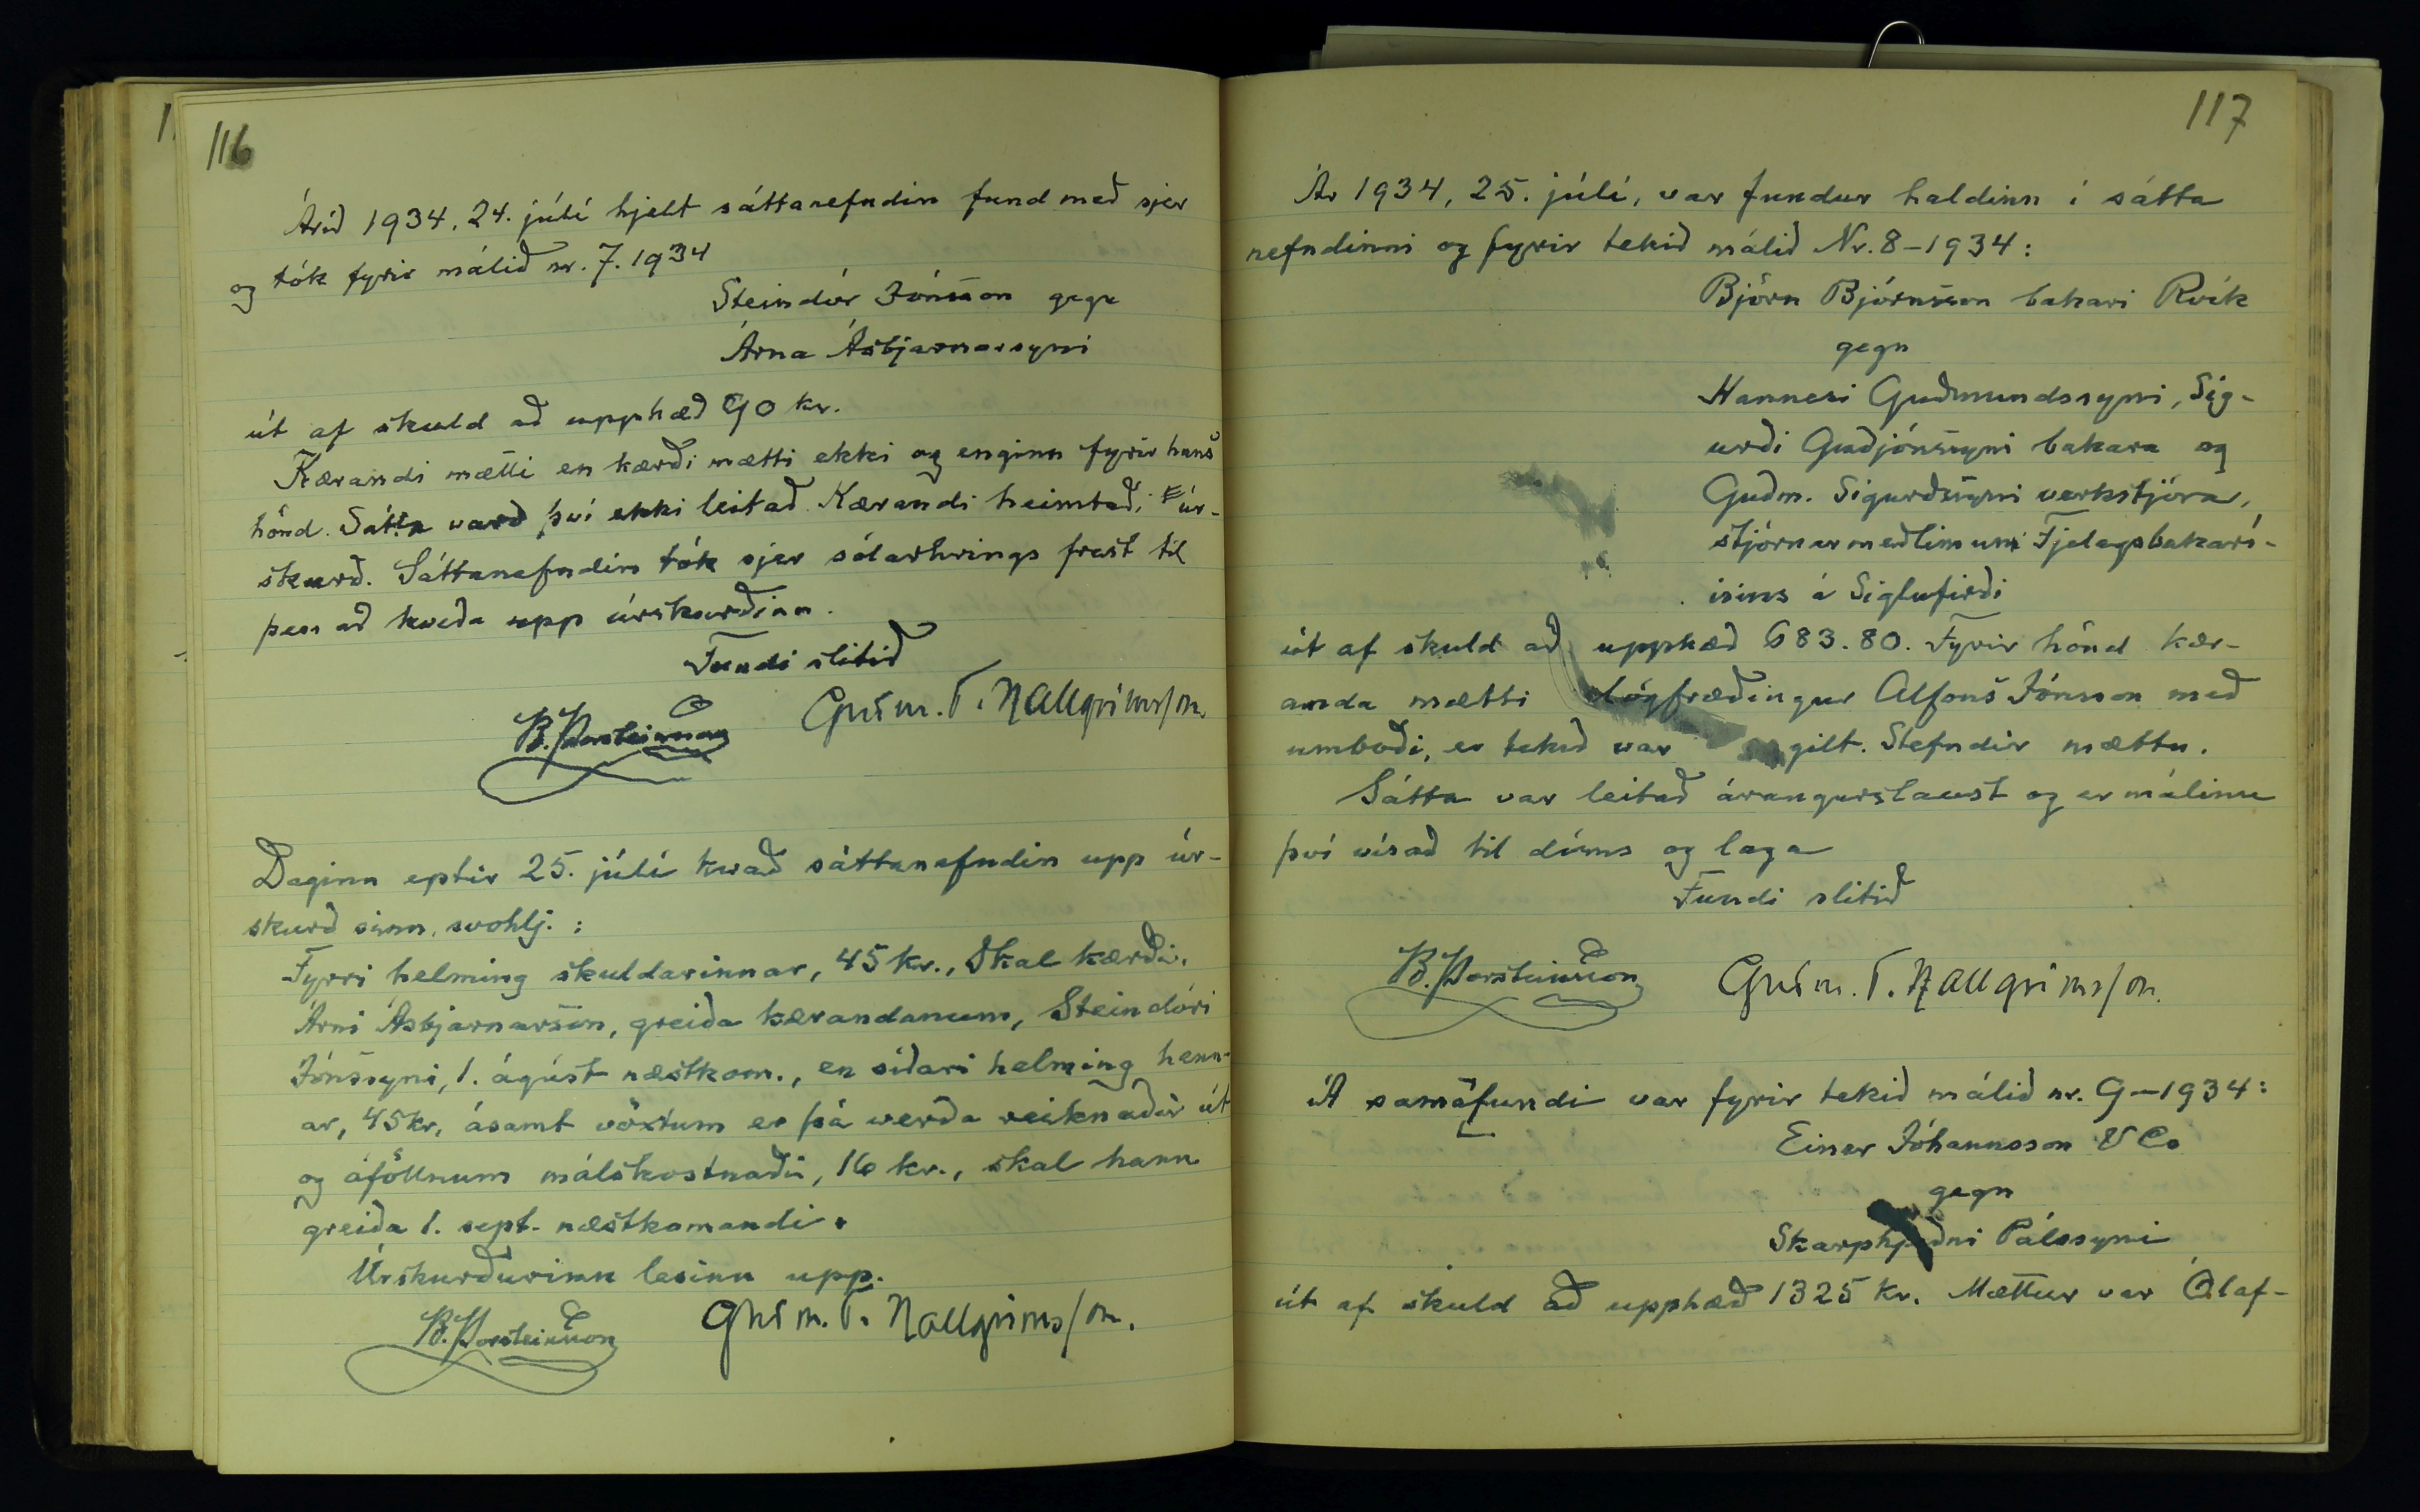 116
Árið 1934, 24. júlí hjelt sáttanefndin fund með sjer
og tók fyrir málið nr. 7. 1934
Steindór Jónsson gegn
Árna Ásbjarnarsyni
út af skuld að upphæð 90 kr.
Kærandi mætti en kærði mætti ekki og enginn fyrir hans
hönd. Sátta varð því ekki leitað. Kærandi heimtaði úr-
skurð. Sáttanefndin tók sjer sólarhrings frest til
þess að kveða upp úrskurðinn.
Fundi slitið
B. Þorsteinsson Guðm. T. Hallgrímsson.
Daginn eptir 25. júlí kvað sáttanefndin upp úr-
skurð sinn, svohlj. :
Fyrri helming skuldarinnar, 45 kr., skal kærði,
Árni Ásbjarnarson, greiða kærandanum, Steindóri
Jónssyni, 1. ágúst næstkom., en síðari helming henn-
ar, 45 kr, ásamt vöxtum er þá verða reiknaðir út
og áföllnum málskostnaði, 16 kr., skal hann
greiða 1. sept. næstkomandi.
Úrskurðurinn lesinn upp.
B. Þorsteinsson Guðm. T. Hallgríms/on.
117
Ár 1934, 25. júlí, var fundur haldinn í sátta
nefndinni og fyrir tekið málið Nr. 8-1934:
Björn Björnsson bakari Rvík
gegn
Hannesi Guðmundssyni, Sig-
urði Guðjónssyni bakara og
Guðm. Sigurðssyni verkstjóra,
stjórnarmeðlimum Fjelagsbakarí-
isins á Siglufirði
út af skuld að upphæð 683.80. Fyrir hönd kær-
anda mætti lögfræðingur Alfons Jónsson með
umboði, er tekið var gilt. Stefndir mættu.
Sátta var leitað árangurslaust og er málinu
því vísað til dóms og laga
Fundi slitið
B. Þorsteinsson Guðm. T. Hallgríms/on.
Á sama fundi var fyrir tekið málið nr. 9-1934:
Einar Jóhannsson & Co
gegn
Skarphjeðni Pálssyni
út af skuld að upphæð 1325 kr. Mættur var Ólaf-